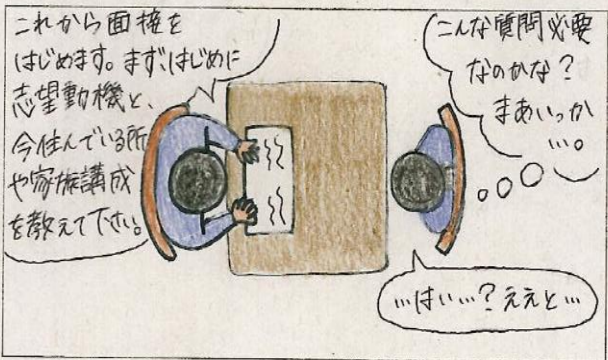 これから面接を
はじめます。まず、はじめに
志望動機と、
今住んでいる所
や家族講成
を教えて下さい。
こんな質問必要
なのかな？
まあいっか
…。
…はい…？ええと…